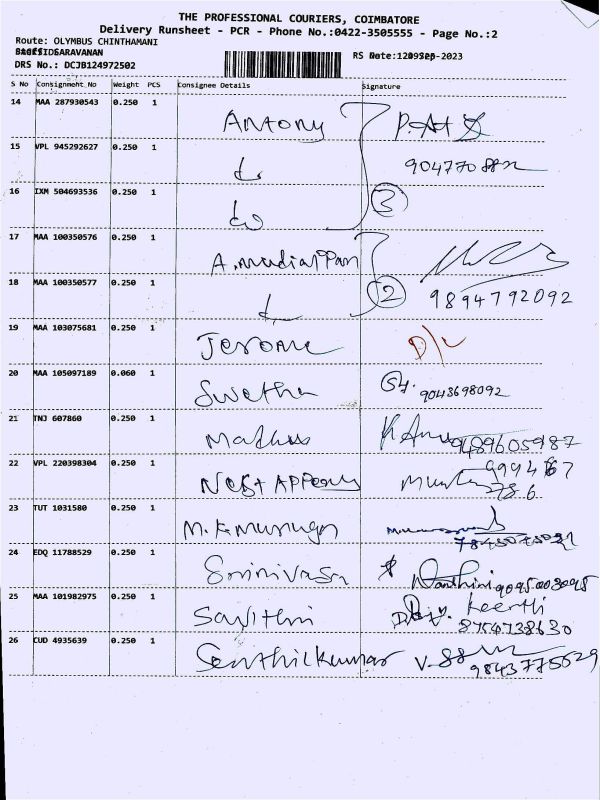 THE PROFESSIONAL COURIERS, COIMBATORE
Delivery Runsheet - PCR - Phone No.:0422-3505555 - Page No.:2
Route: OLYMBUS CHINTHAMANI
SARAVANAN
RS Date: Sep-2023
DRS No.: DCJB124972502
S No Consignment No Weight PCS Consignee Details Signature
14 MAA 287930543 0.250 1 Antony
15 VPL 945292627 0.250 1
16 IXM 504693536 0.250 1 3
17 MAA 100350576 0.250 1
18 MAA 100350577 0.250 1 2 9894792092
19 MAA 103075681 0.250 1 Jerome
20 MAA 105097189 0.060 1 Swetha 9043698092
21 TNJ 607860 0.250 1 9489605987
22 VPL 220398304 0.250 1
23 TUT 1031580 0.250 1
24 EDQ 11788529 0.250 1 Srinivasan 9095003095
25 MAA 101982975 0.250 1 Savithri Keerthi
8754738630
26 CUD 4935639 0.250 1 Senthilkumar